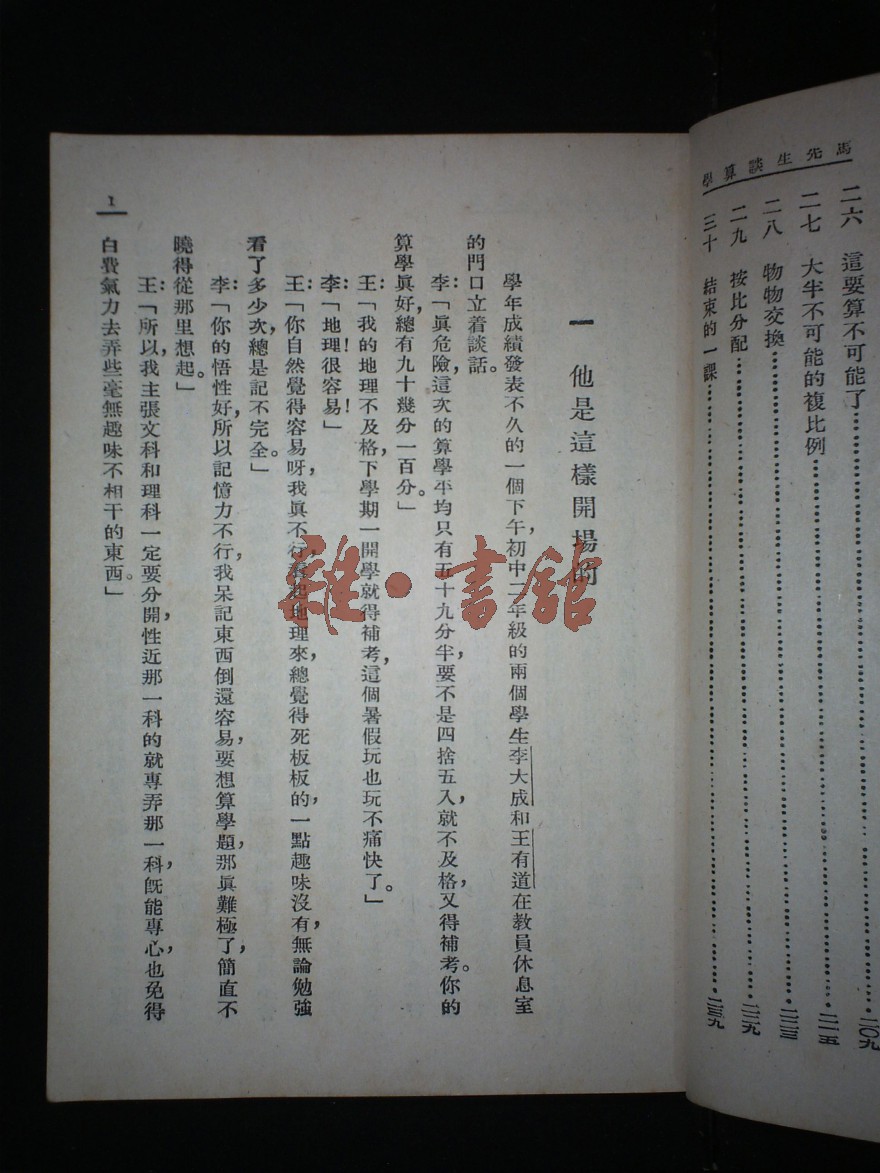 馬先生談算學
二六 這要算不可能了……二〇九
二七 大半不可能的複比例……二一五
二八 物物交換……二二三
二九 按比分配……二二九
三十 結束的一課……二三九
一 他是這樣開場的
學年成績發表不久的一個下午,初中二年級的兩個學生李大成和王有道在教員休息室
的門口立着談話。
李:「眞危險,這次的算學平均只有五十九分半,要不是四捨五入,就不及格,又得補考。你的
算學眞好,總有九十幾分一百分。」
王:「我的地理不及格,下學期一開學就得補考,這個暑假玩也玩不痛快了。」
李:「地理!很容易!」
王:「你自然覺得容易呀,我眞不行,看起地理來,總覺得死板板的,一點趣味沒有,無論勉強
看了多少次,總是記不完全。」
李:「你的悟性好,所以記憶力不行,我呆記東西倒還容易,要想算學題,那眞難極了,簡直不
曉得從那里想起。」
王:「所以,我主張文科和理科一定要分開,性近那一科的就專弄那一科,旣能專心,也免得
白費氣力去弄些毫無趣味不相干的東西。」
1
雜·書舘